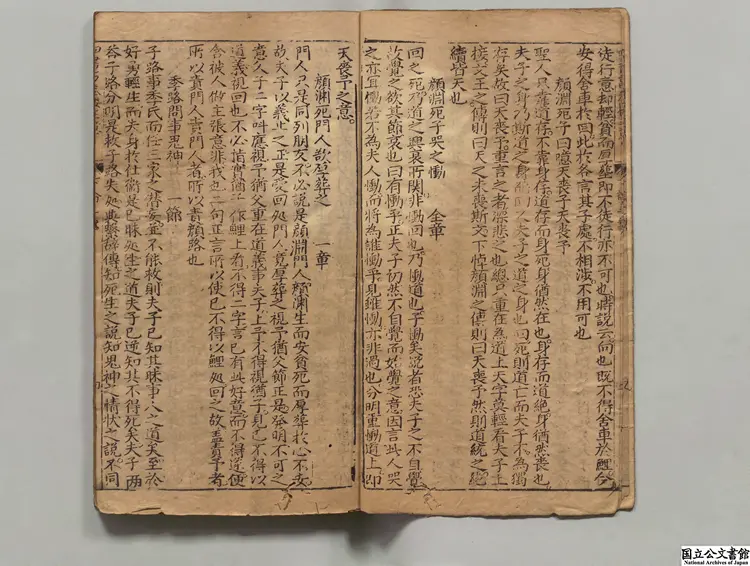 徒行意却輕貧而厚葬即不徒行亦不可也時說云向也既不得舍車於鯉今
安得舍車於回此於各言其子處不相涉不用可也
顏淵死子曰噫天喪予天喪予
聖人只靠道存不靠身存道存而身死身猶然在也身存而道絕身猶然喪也
夫子之身乃斯道之身
回死則道亡而夫子不為獨
存矣故曰天喪予重言之者深悲之也總只重在為道上天字莫輕看夫子上
接文王之傳則曰天之未喪斯文下悼顏淵之傳則曰天喪予然則道統之絕
續皆天也
顏淵死子哭之慟 全章
回之死乃道之興衰所關非慟回也乃慟道也子慟矣說者恐夫子之不自覺
故覺之欲其節哀也曰有慟乎正夫子切然不自覺而始覺之意因言此人哭
之亦宜慟若不為夫人慟而將為誰慟乎見雖慟亦非過也分明重慟道上即
天喪予之意
顏淵死門人欲厚葬之 一章
門人只是同列朋友不必說是顏淵門人顏淵生而安貧死而厚葬於心不安
故夫子以義止之正是愛回處門人竟厚葬之視予猶父節正是發明不可之
意人子二字叫應視予猶父重在道義事夫子上予不得視猶子見已不得以
道義視回也不必指貧猶二作鯉上看不得二字言已有此好意而不得遂便
含被人做主張意非我也二句正言所以使已不得以鯉處回之故
責予者
所以責門人責門人者所以責顏路也
季路問事鬼神 一節
子路事季氏而任三家之僭妄
不能救則夫子已知其昧事人之道矣至於
好勇輕生而失身於仕衛是已昧處生之道夫子已逆知其不得死矣夫子兩
答子路分明是救子路失處與繫辭傳知死生之說知鬼神之情狀之說不同
国立公文書館
National Archives of Japan